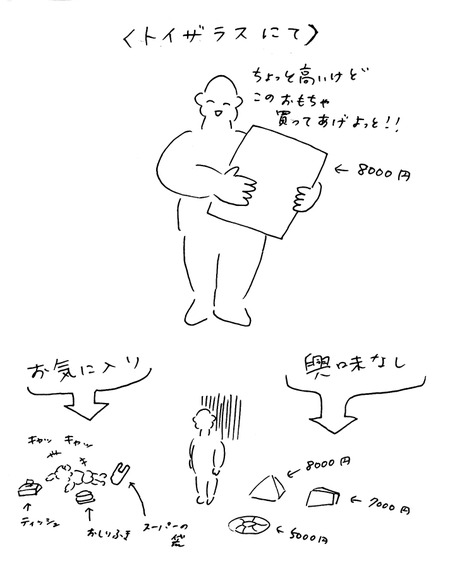 〈トイザラスにて〉
ちょっと高いけど
このおもちゃ
買ってあげよっと!!
← 8000円
お気に入り
興味なし
キャッ キャッ
ティッシュ
おしりふき
スーパーの
袋
8000円
7000円
5000円